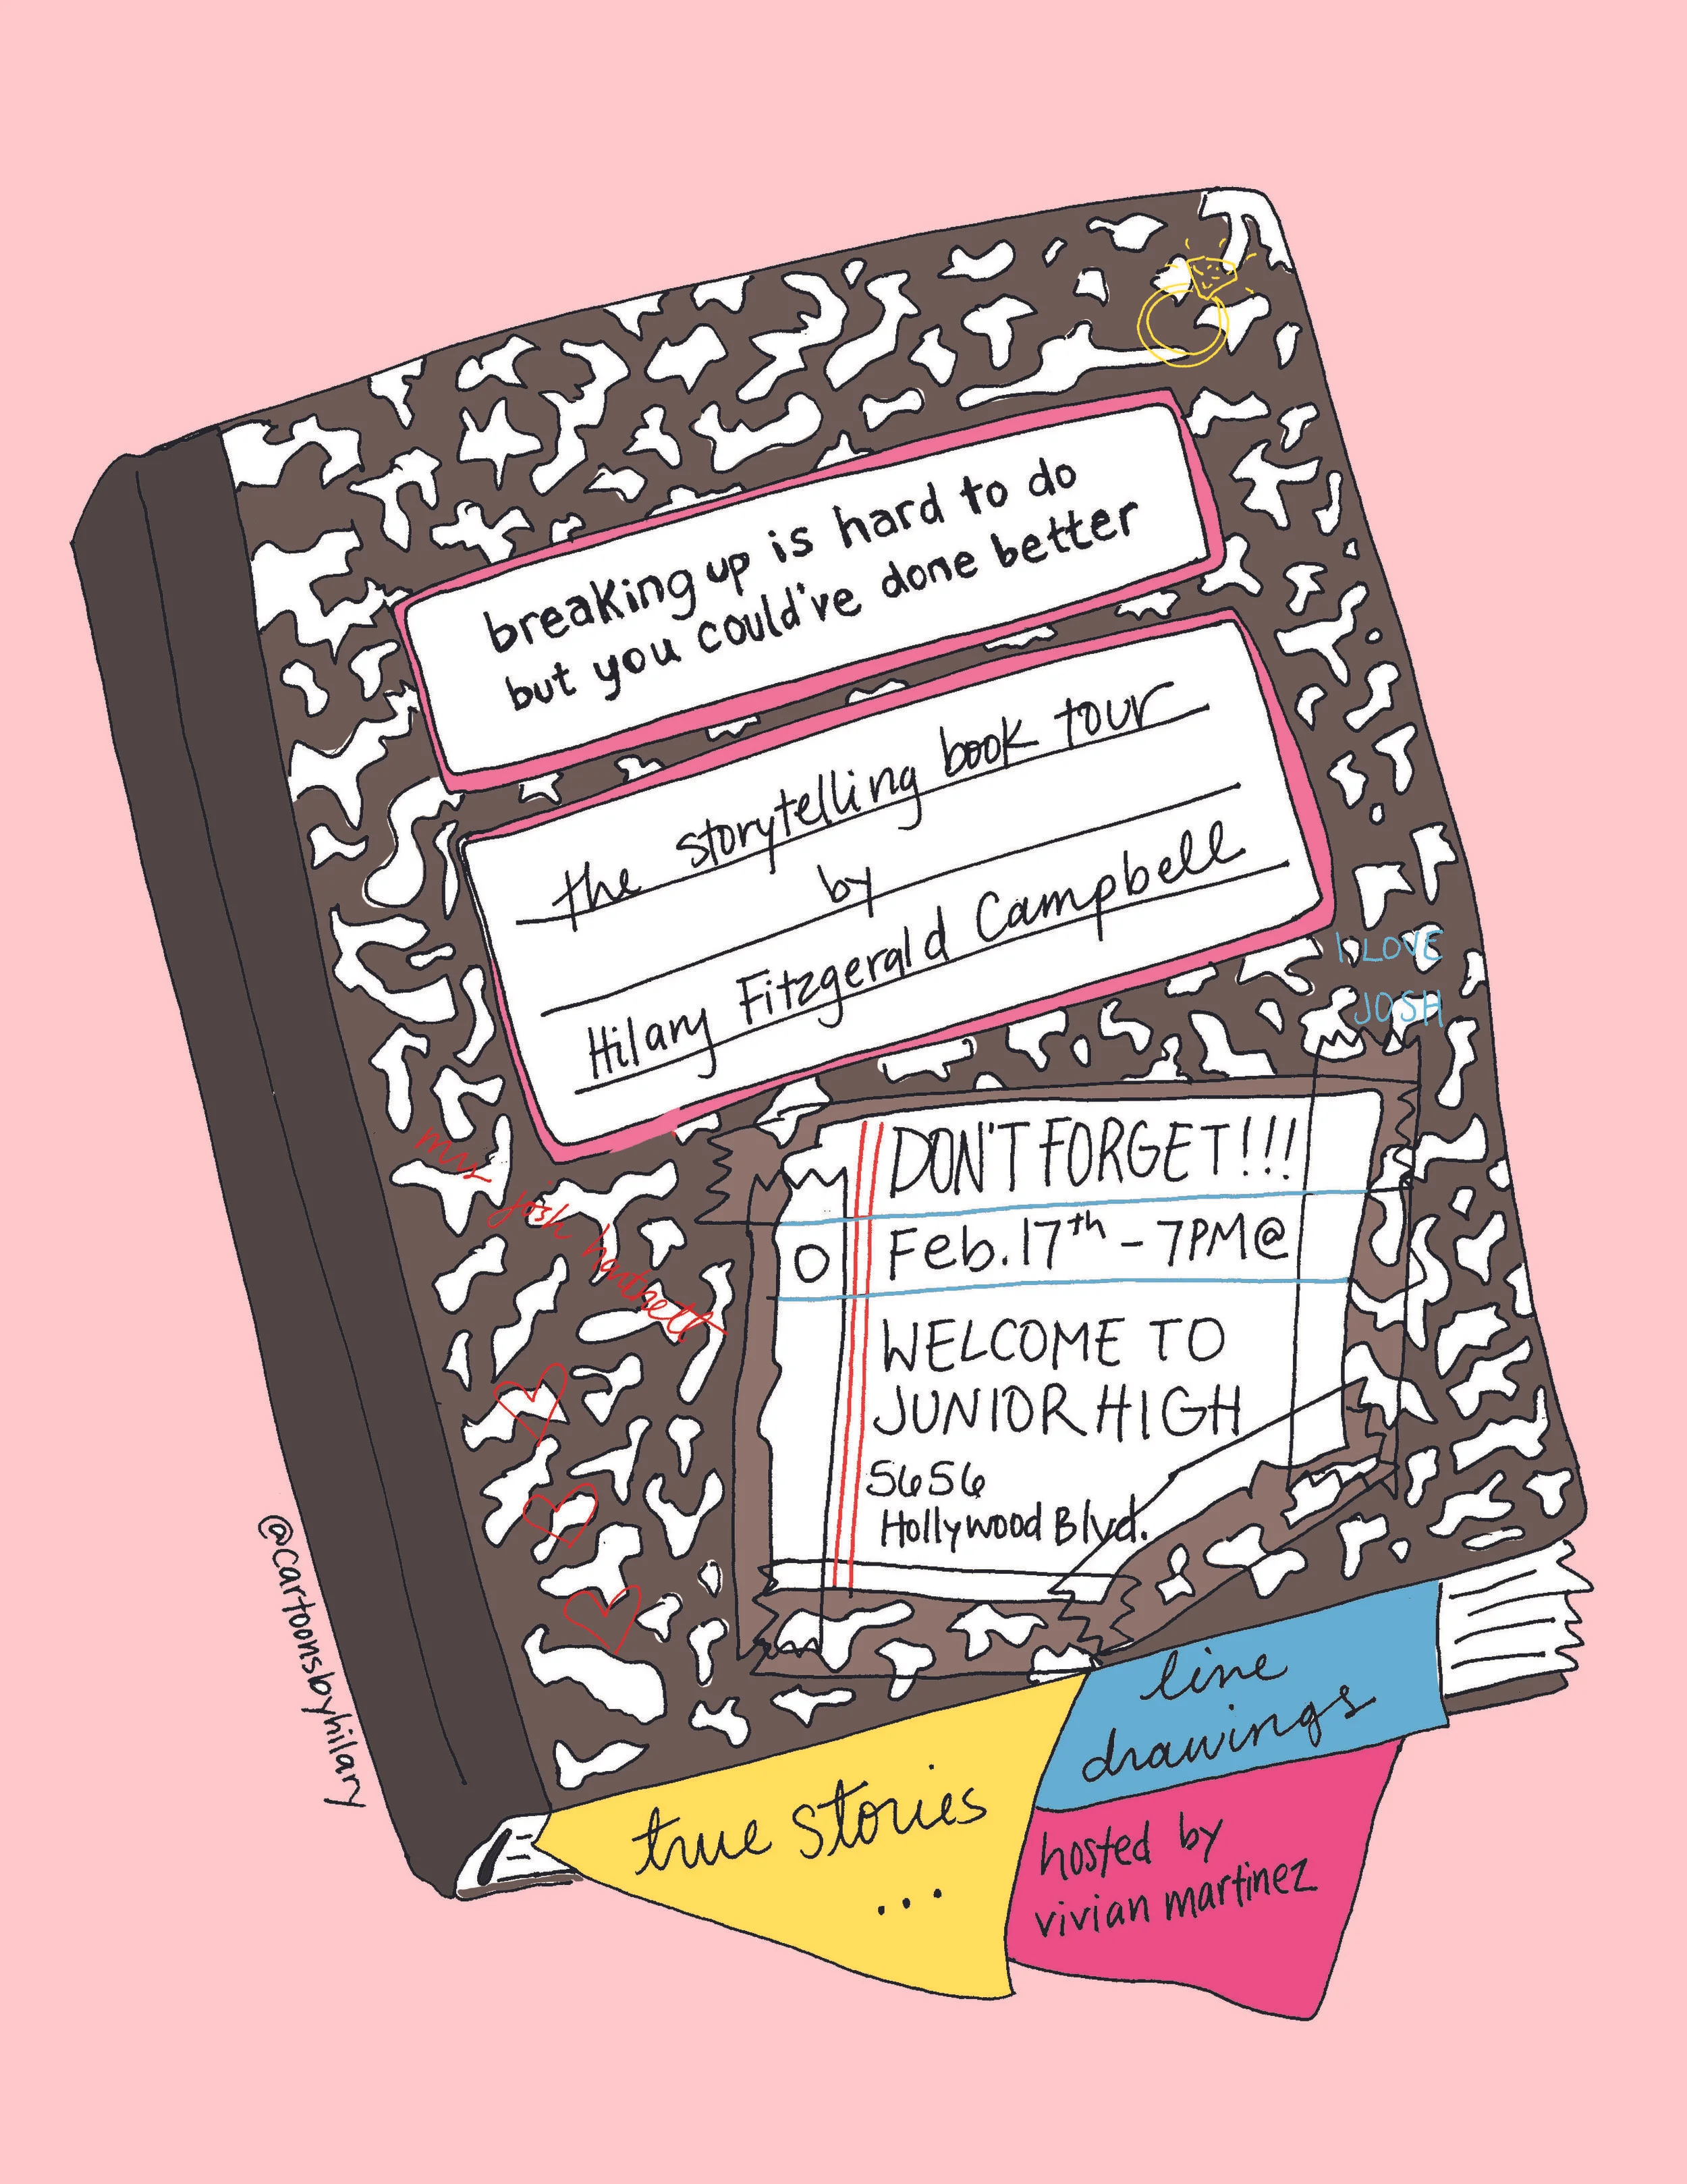 breaking up is hard to do
but you could've done better
the storytelling book tour
by
Hilary Fitzgerald Campbell
I LOVE
JOSH
DON'T FORGET!!!
Feb. 17th - 7PM @
WELCOME TO
JUNIOR HIGH
5656
Hollywood Blvd.
mrs josh hartnett
@cartoonsbyhilary
line
drawings
true stories
...
hosted by
vivian martinez